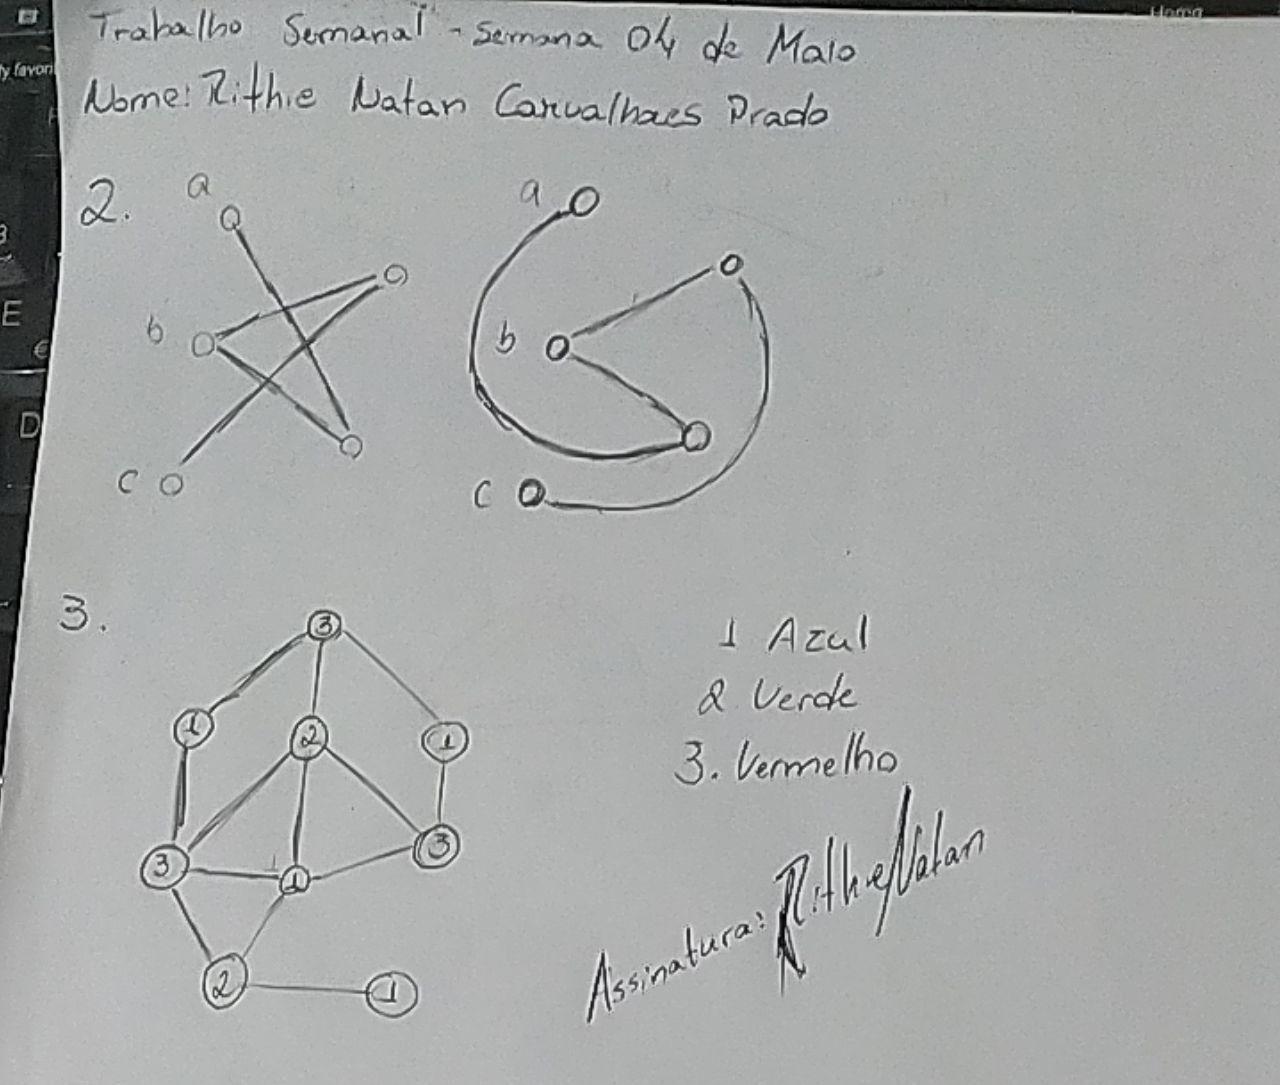 Trabalho Semanal - Semana 04 de Maio
Nome: Rithie Natan Carvalhaes Prado
2.
a
b
c
a
b
c
3.
3
1
2
1
3
1
3
2
1
1 Azul
2 Verde
3. Vermelho
Assinatura: Rithie Natan
Home
y favori
E
€
D